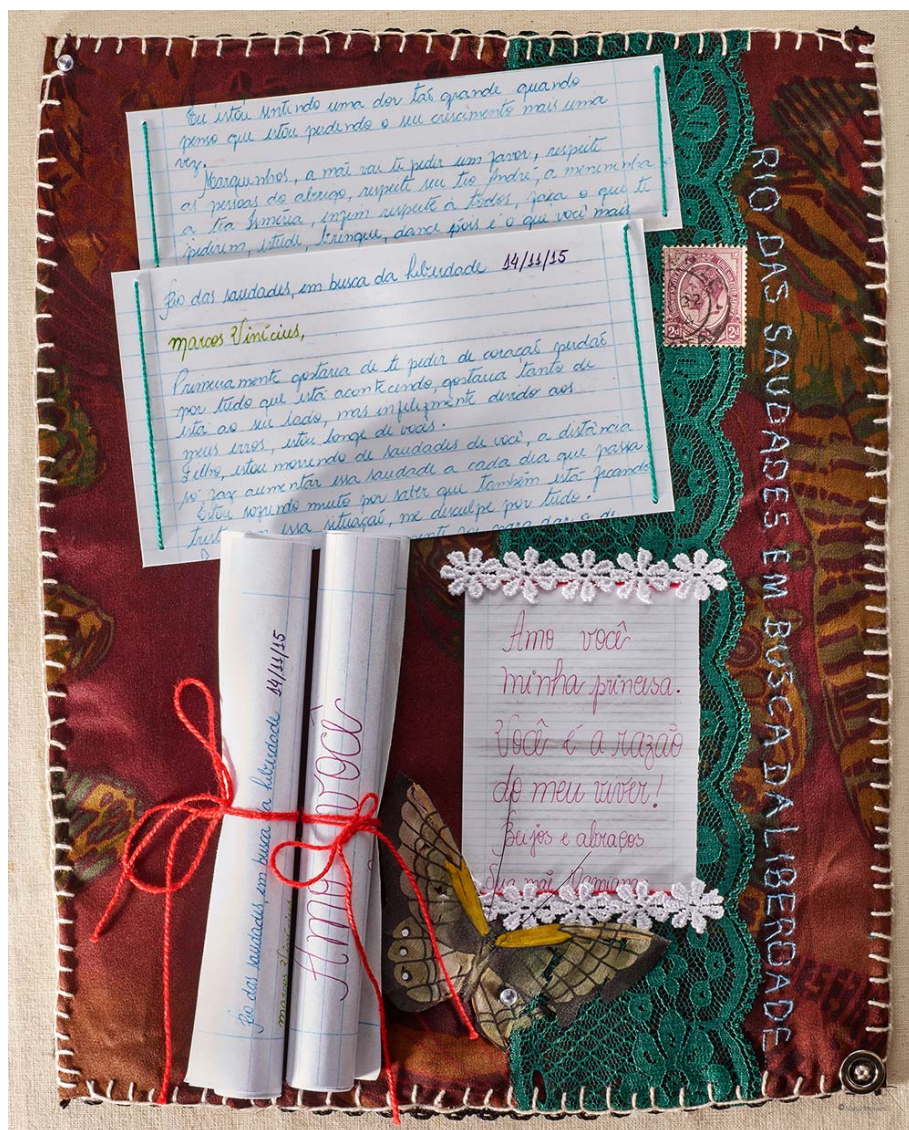 Eu estou sentindo uma dor tão grande quando
penso que estou perdendo o seu crescimento mais uma
vez.
Marquinhos, a mãe vai te pedir um favor, respeite
as pessoas do abrigo, respeite seu tio André, a menininha e
a tia Ismeria, enfim respeite à todos, faça o que te
pedirem, estude, brinque, dance pois é o que você mais
Rio das saudades, em busca da liberdade 14/11/15
Marcos Vinícius,
Primeiramente gostaria de te pedir de coração perdão
por tudo que está acontecendo, gostaria tanto de
está ao seu lado, mas infelizmente devido aos
meus erros, estou longe de vocês.
Filho, estou morrendo de saudades de você, a distância
só faz aumentar essa saudade a cada dia que passa
Estou sofrendo muito por saber que também está ficando
essa situação, me desculpe por tudo!
2d 2d
RIO DAS SAUDADES EM BUSCA DA LIBERDADE
Amo você
minha princesa.
Você é a razão
do meu viver!
Beijos e abraços
sua mãe
Rio das saudades, em busca da liberdade 14/11/15
Marcos Vinícius
Amo você